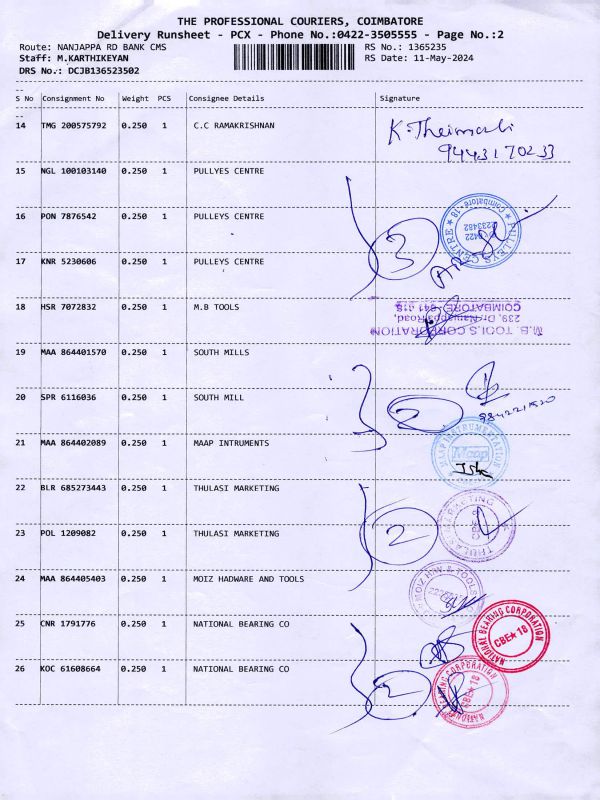 THE PROFESSIONAL COURIERS, COIMBATORE
Delivery Runsheet - PCX - Phone No.:0422-3505555 - Page No.:2
Route: NANJAPPA RD BANK CMS RS No.: 1365235
Staff: M.KARTHIKEYAN RS Date: 11-May-2024
DRS No.: DCJB136523502
S No Consignment No Weight PCS Consignee Details Signature
14 TMG 200575792 0.250 1 C.C RAMAKRISHNAN
9443170233
15 NGL 100103140 0.250 1 PULLYES CENTRE
16 PON 7876542 0.250 1 PULLEYS CENTRE
3
PULLEYS CENTRE Coimbatore-18
0422
4233482
17 KNR 5230606 0.250 1 PULLEYS CENTRE
18 HSR 7072832 0.250 1 M.B TOOLS
M.B. TOOLS CORPORATION
239, Dr. Nanjappa Road,
COIMBATORE-641 018
19 MAA 864401570 0.250 1 SOUTH MILLS
20 SPR 6116036 0.250 1 SOUTH MILL
2
21 MAA 864402089 0.250 1 MAAP INTRUMENTS
MAAP INSTRUMENTATION
Maap
22 BLR 685273443 0.250 1 THULASI MARKETING
23 POL 1209082 0.250 1 THULASI MARKETING
2
THULASI MARKETING
24 MAA 864405403 0.250 1 MOIZ HADWARE AND TOOLS
MOIZ H/W & TOOLS
25 CNR 1791776 0.250 1 NATIONAL BEARING CO
NATIONAL BEARING CORPORATION
CBE★18
26 KOC 61608664 0.250 1 NATIONAL BEARING CO
2
NATIONAL BEARING CORPORATION
CBE★18